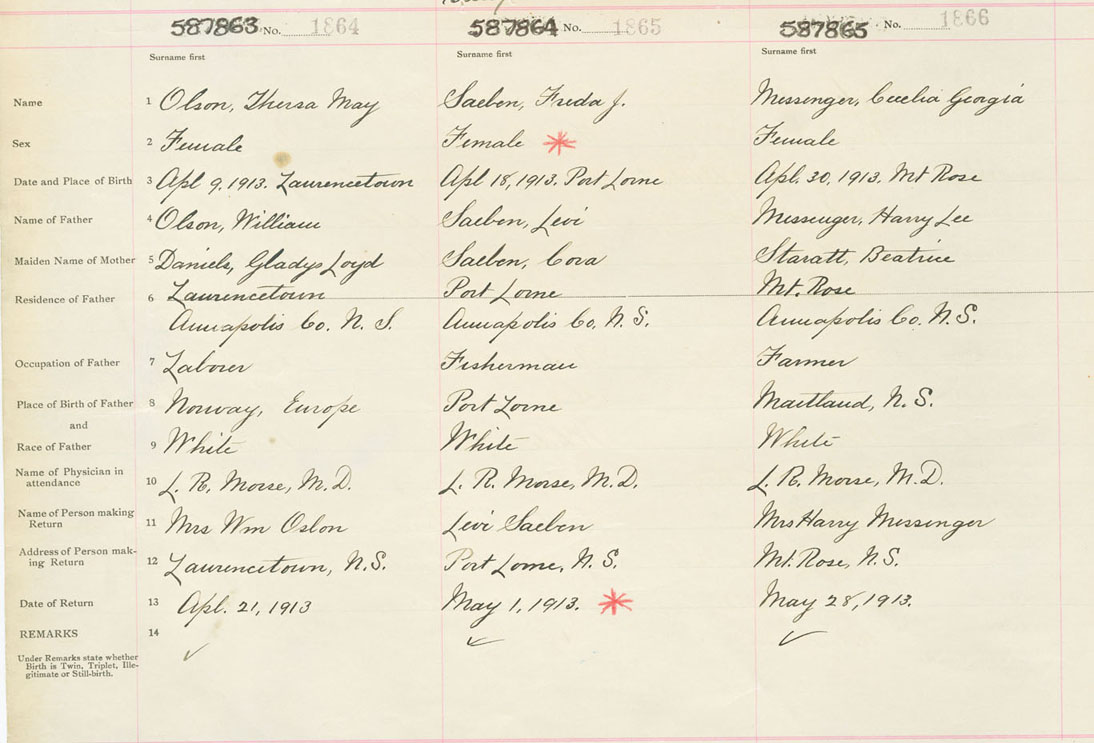 587863 No. 1864 587864 No. 1865 587865 No. 1866
Surname first Surname first Surname first
Name 1 Olson, Thersa May Saeben, Freda J. Messenger, Cecelia Georgia
Sex 2 Female Female Female
Date and Place of Birth 3 Apl 9, 1913. Laurencetown Apl 18, 1913. Port Lorne Apl. 30, 1913. Mt Rose
Name of Father 4 Olson, William Saeben, Levi Messenger, Harry Lee
Maiden Name of Mother 5 Daniels, Gladys Loyd Saeben, Cora Staratt, Beatrice
Residence of Father 6 Laurencetown Port Lorne Mt. Rose
Annapolis Co. N. S. Annapolis Co. N. S. Annapolis Co. N. S.
Occupation of Father 7 Laborer Fisherman Farmer
Place of Birth of Father 8 Norway, Europe Port Lorne Maitland, N. S.
and
Race of Father 9 White White White
Name of Physician in
attendance 10 L. R. Morse, M.D. L. R. Morse, M.D. L. R. Morse, M.D.
Name of Person making
Return 11 Mrs Wm Oslon Levi Saeben Mrs Harry Messenger
Address of Person mak-
ing Return 12 Laurencetown, N.S. Port Lorne, N. S. Mt. Rose, N. S.
Date of Return 13 Apl. 21, 1913 May 1, 1913. May 28, 1913.
REMARKS 14
Under Remarks state whether
Birth is Twin, Triplet, Ille-
gitimate or Still-birth.